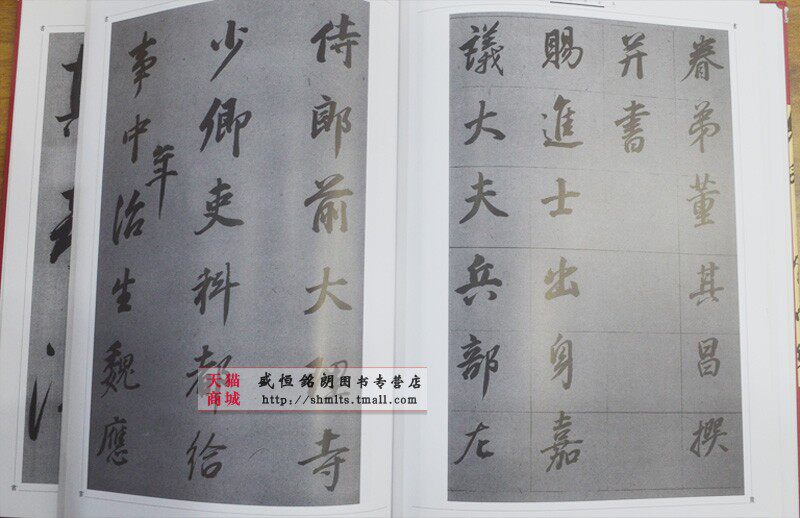 眷弟董其昌撰
并書
賜進士出身嘉
議大夫兵部左
侍郎前大理寺
少卿吏科都給
事中年治生魏應
天猫
商城
盛恒銘朗图书专营店
http://shmlts.tmall.com